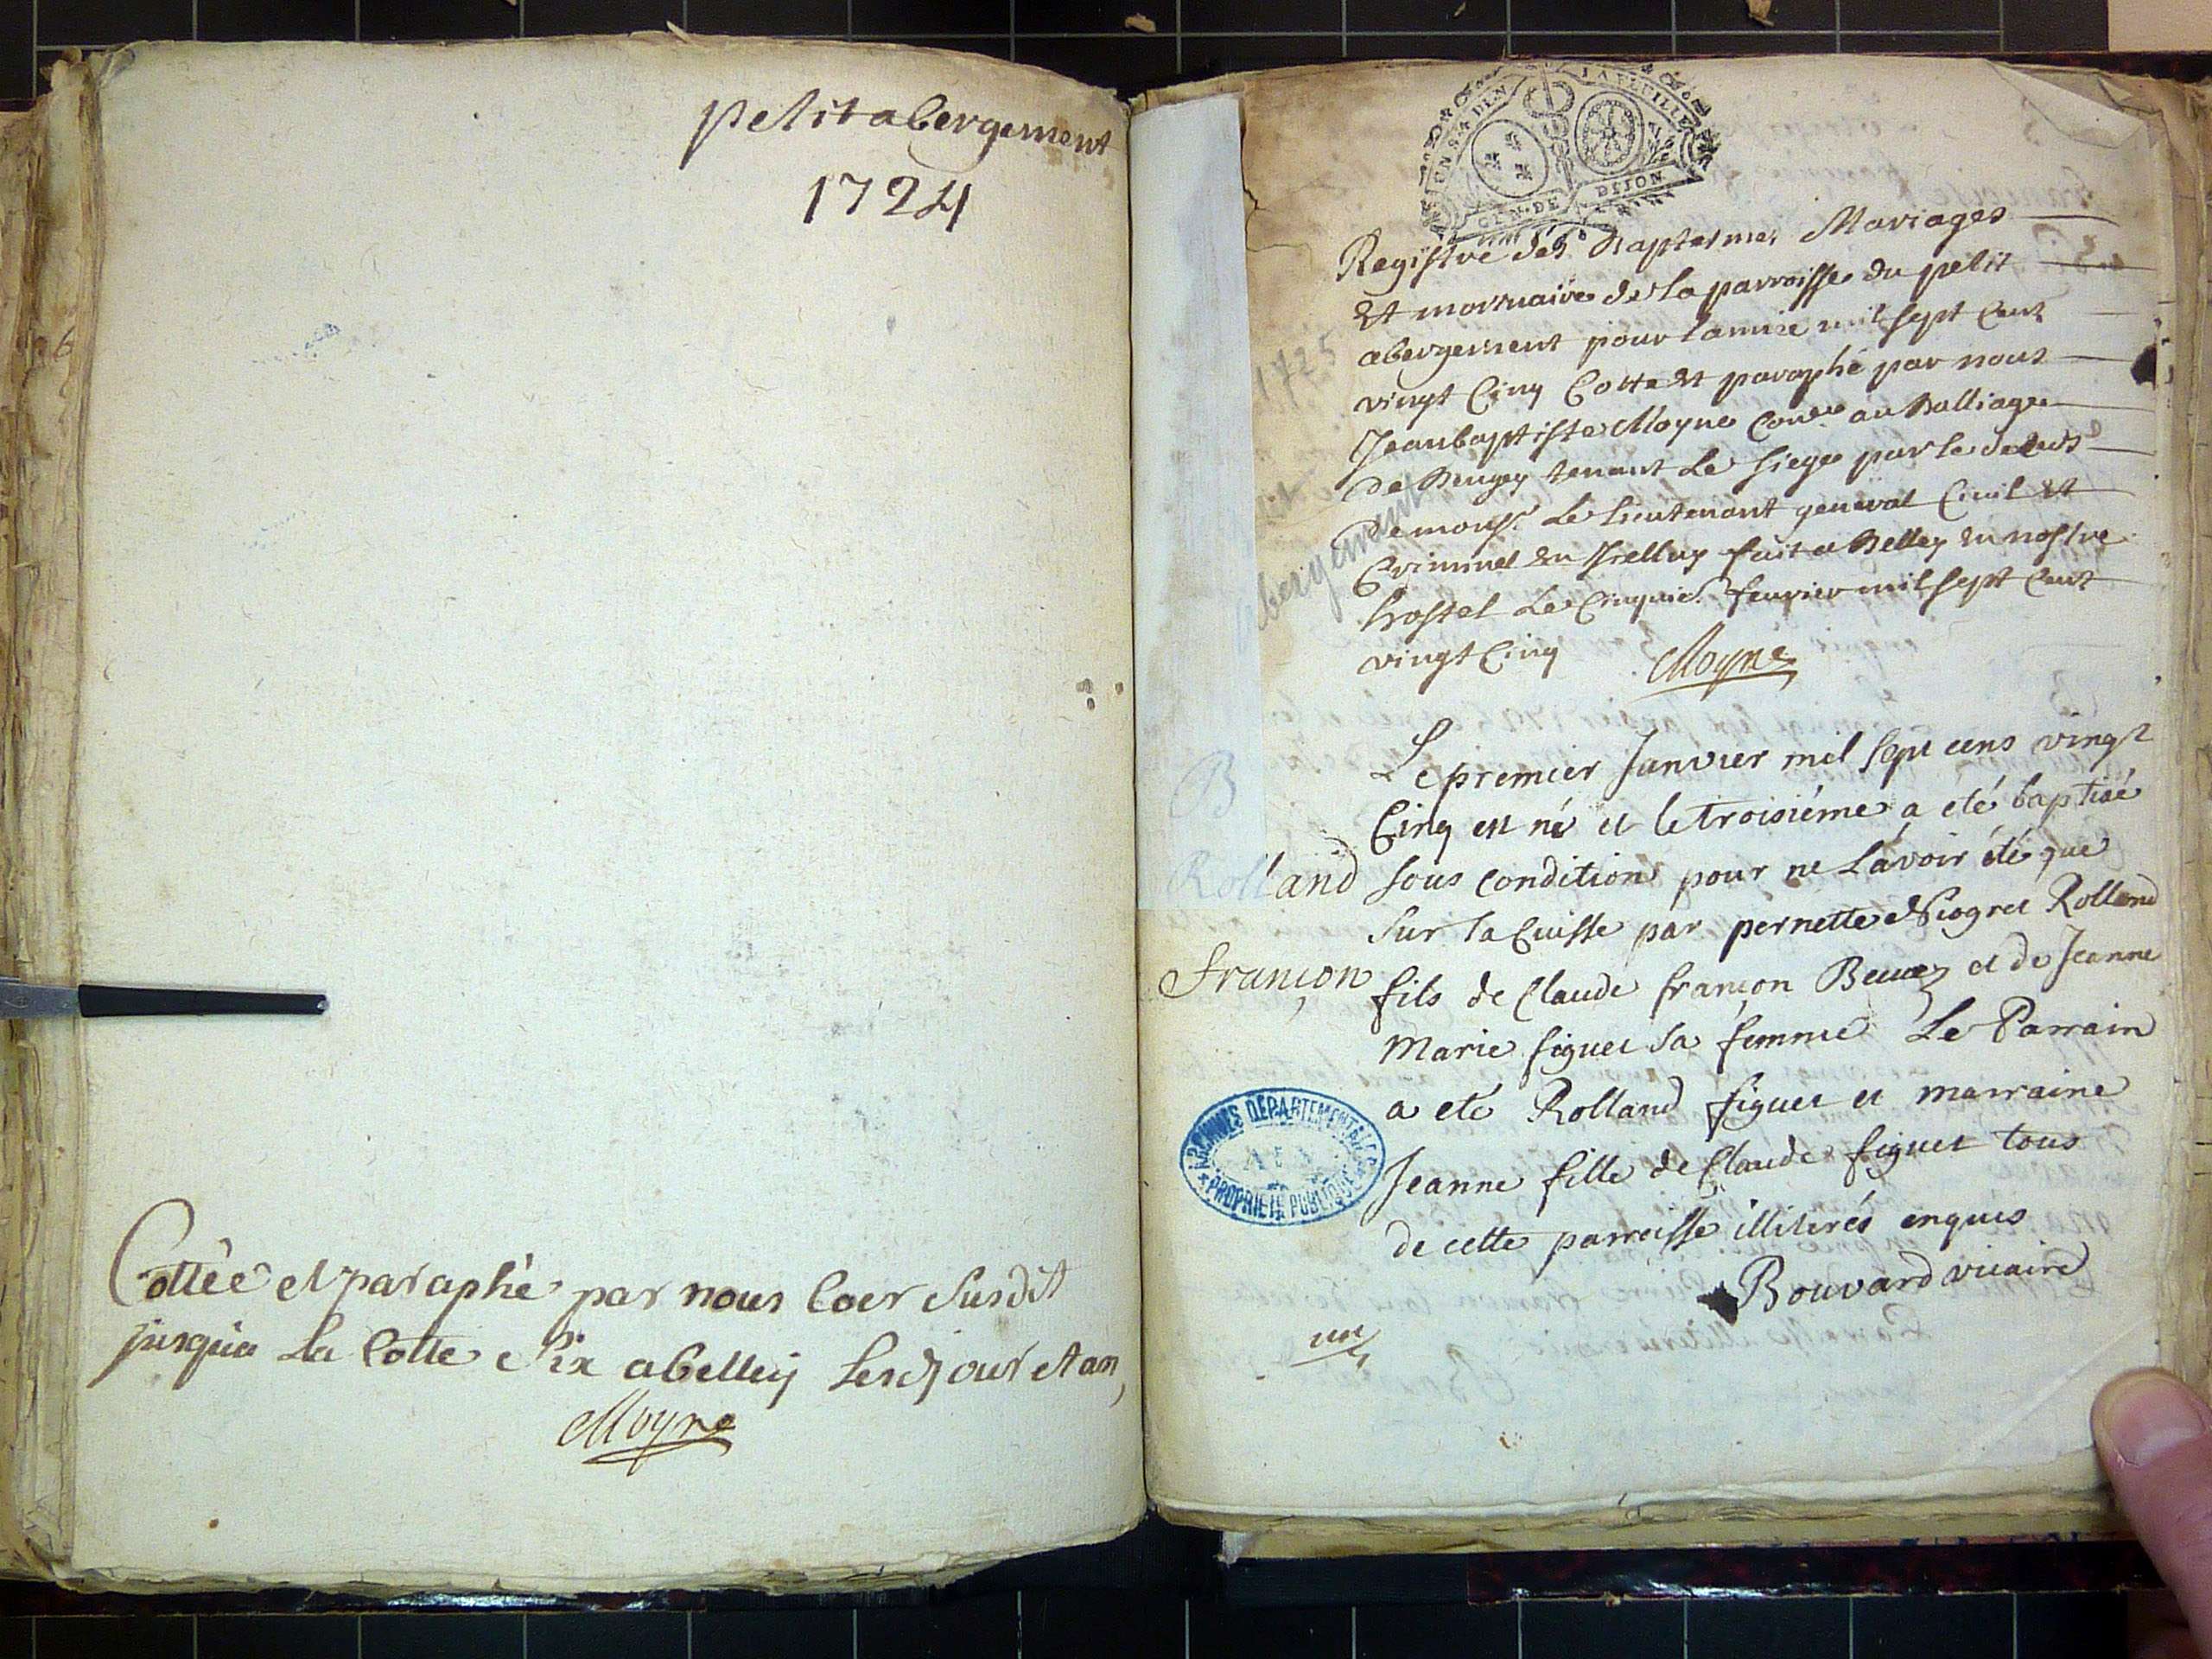 petit abergement
1724
Cottée et paraphé par nous Coer Susdit
jusqua La Cotte Six a belley Lesd jour et an
Moyne
GEN·DE DIJON
Registre des Baptesmes Mariages
Et mortuaire de la parroisse du petit
abergement pour lannée mil sept cent
vingt Cinq Cotté Et paraphé par nous
Jean baptiste Moyne Coner au Balliage
de Beugey tenant Le siege par le deceds
de monsr Le lieutenant general Civil Et
Criminel En Icelluy fait a Belley En nostre
hostel Le Cinquie. feurier mil sept Cent
vingt Cinq
Moyne
1725
abergement
B
Rolland
françon
Le premier Janvier mil sept cens vingt
Cinq est né et le troisiéme a été baptisé
sous condition pour ne L'avoir été que
Sur la Cuisse par pernette Rolland
fils de Claude françon et de Jeanne
Marie figuet sa femme Le Parrain
a eté Rolland figuet et marraine
Jeanne fille de Claude figuet tous
de cette parroisse illiterés enquis
Bouvard vicaire
un
ARCHIVES DEPARTEMENTALES
AIN
PROPRIETE PUBLIQUE